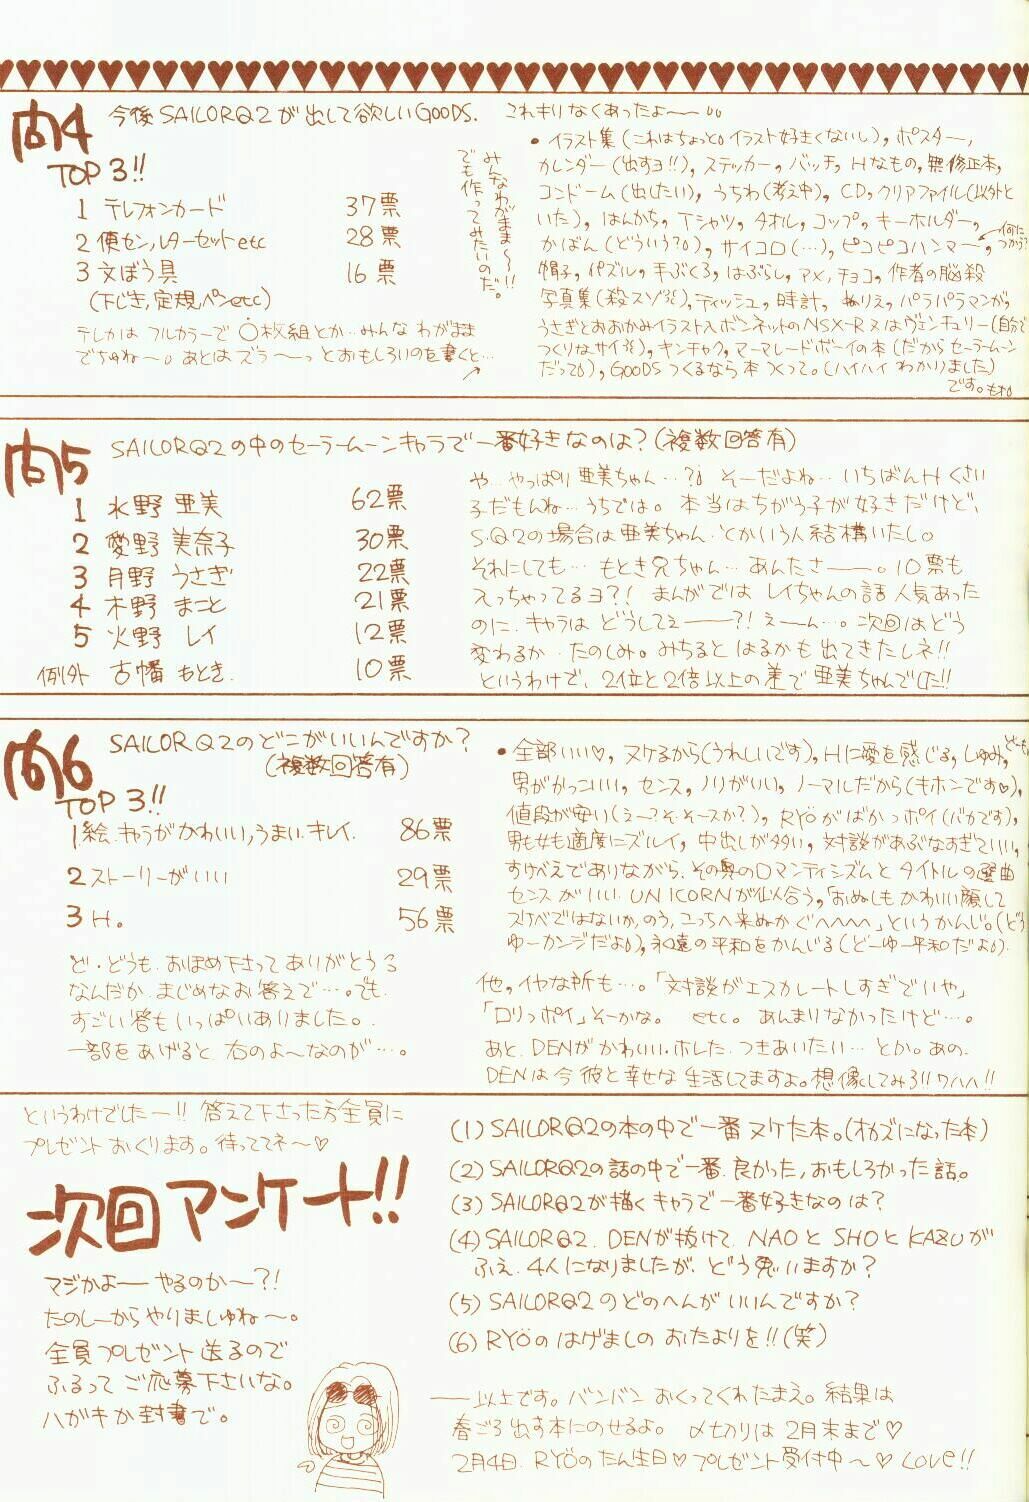 問4 今後SAILORQ2が出して欲しいGOODS.
TOP 3!!
1 テレフォンカード 37票
2 便セン,レターセットetc 28票
3 文ぼう具 16票
(下じき,定規,ペンetc)
テレカは フルカラーで ○枚組とか…みんな わがまま
でちゅね〜。あとは ズラ〜〜っと おもしろいのを書くと…
みんなわがまま〜〜!!
でも作ってみたいのだ。
これもりなくあったよ〜〜
• イラスト集(これはちょっと。イラスト好きくないし), ポスター,
カレンダー(出すヨ!!), ステッカー, バッチ, Hなもの, 無修正本,
コンドーム(出したい), うちわ(考え中), CD, クリアファイル(以外と
いた), はんかち, Tシャツ, タオル, コップ, キーホルダー,
かばん(どういう?), サイコロ(…), ピコピコハンマー, 何につかう?
帽子, パズル, 手ぶくろ, はぶらし, アメ, チョコ, 作者の脳殺
写真集(殺スゾ), ティッシュ, 時計, ぬりえ, パラパラマンガ,
うさぎとおおかみイラスト入ボンネットのNSX-R又はヴェンチュリー(自分で
つくりなサイ), キンチャク, マーマレードボーイの本(だからセーラームーン
だって), GOODSつくるなら本つくって。(ハイハイ わかりました)
です。
問5 SAILORQ2の中のセーラームーンキャラで一番好きなのは?(複数回答有)
1 水野 亜美 62票
2 愛野 美奈子 30票
3 月野 うさぎ 22票
4 木野 まこと 21票
5 火野 レイ 12票
例外 古幡 もとき. 10票
や…やっぱり 亜美ちゃん…? そーだよね… いちばんHくさい
子だもんね… うちでは。本当はちがう子が好きだけど、
S.Q2の場合は亜美ちゃん.とかいう人 結構いたし。
それにしても… もとき兄ちゃん… あんたさ——。10票も
入っちゃってるヨ?! まんがでは レイちゃんの話 人気あった
のに.キャラは どうしてぇ——?! えーん…。次回はどう
変わるか.たのしみ。みちると はるかも出てきたしネ!!
というわけで、2位と2倍以上の差で 亜美ちゃんでした!!
問6 SAILORQ2のどこがいいんですか?
(複数回答有)
TOP 3!!
1.絵.キャラがかわいい,うまい.キレイ. 86票
2 ストーリーがいい 29票
3 H. 56票
ど・どうも.おほめ下さって ありがとう
なんだか.まじめなお答えで…。でも.
すごい答も いっぱいありました。
一部を あげると 右のよ〜なのが…。
• 全部いい♡, ヌケるから(うれしいです), Hに愛を感じる, しゅみ,
男がかっこいい, センス, ノリがいい, ノーマルだから(キホンです♡),
値段が安い(え〜?そ.そースか?), RYÖがばかっポイ(バカです),
男も女も適度にズルイ, 中出しが多い, 対談があぶなすぎていい,
すけべえでありながら.その奥のロマンティシズムと タイトルの選曲
センスがいい. UNICORNが似合う,「おぬしも かわいい顔して
スケベではないか,のう,こっちへ来ぬか ぐへへへへ」というかんじ。(どう
ゆーカンジだよ), 永遠の平和をかんじる(どーゆー平和だよ).
他,イヤな所も…。「対談がエスカレートしすぎでいや」
「ロリっポイ」そーかな。 etc。 あんまりなかったけど…。
あと.DENが かわいい.ホレた.つきあいたい… とか。あの.
DENは今 彼と幸せな 生活してますよ。想像してみろ!! ワハハ!!
というわけでした〜!! 答えて下さった方全員に
プレゼント おくります。待っててネ〜♡
次回アンケート!!
マジかよ— やるのか〜?!
たのしーから やりましゅね〜。
全員プレゼント 送るので
ふるって ご応募下さいな。
ハガキか 封書で。
(1) SAILORQ2の本の中で一番 ヌケた本。(オカズになった本)
(2) SAILORQ2の話の中で一番.良かった,おもしろかった話。
(3) SAILORQ2が描くキャラで一番好きなのは?
(4) SAILORQ2. DENが抜けて. NAOと SHOと KAZUが
ふえ.4人になりましたが.どう思いますか?
(5) SAILORQ2 の どのへんが いいんですか?
(6) RYÖの はげましの おたよりを!!(笑)
——以上です。バンバン おくってくれたまえ。結果は
春ごろ出す本にのせるよ。 〆切りは 2月末まで♡
2月4日. RYÖのたん生日♡ プレゼント受付中〜♡ LOVE!!